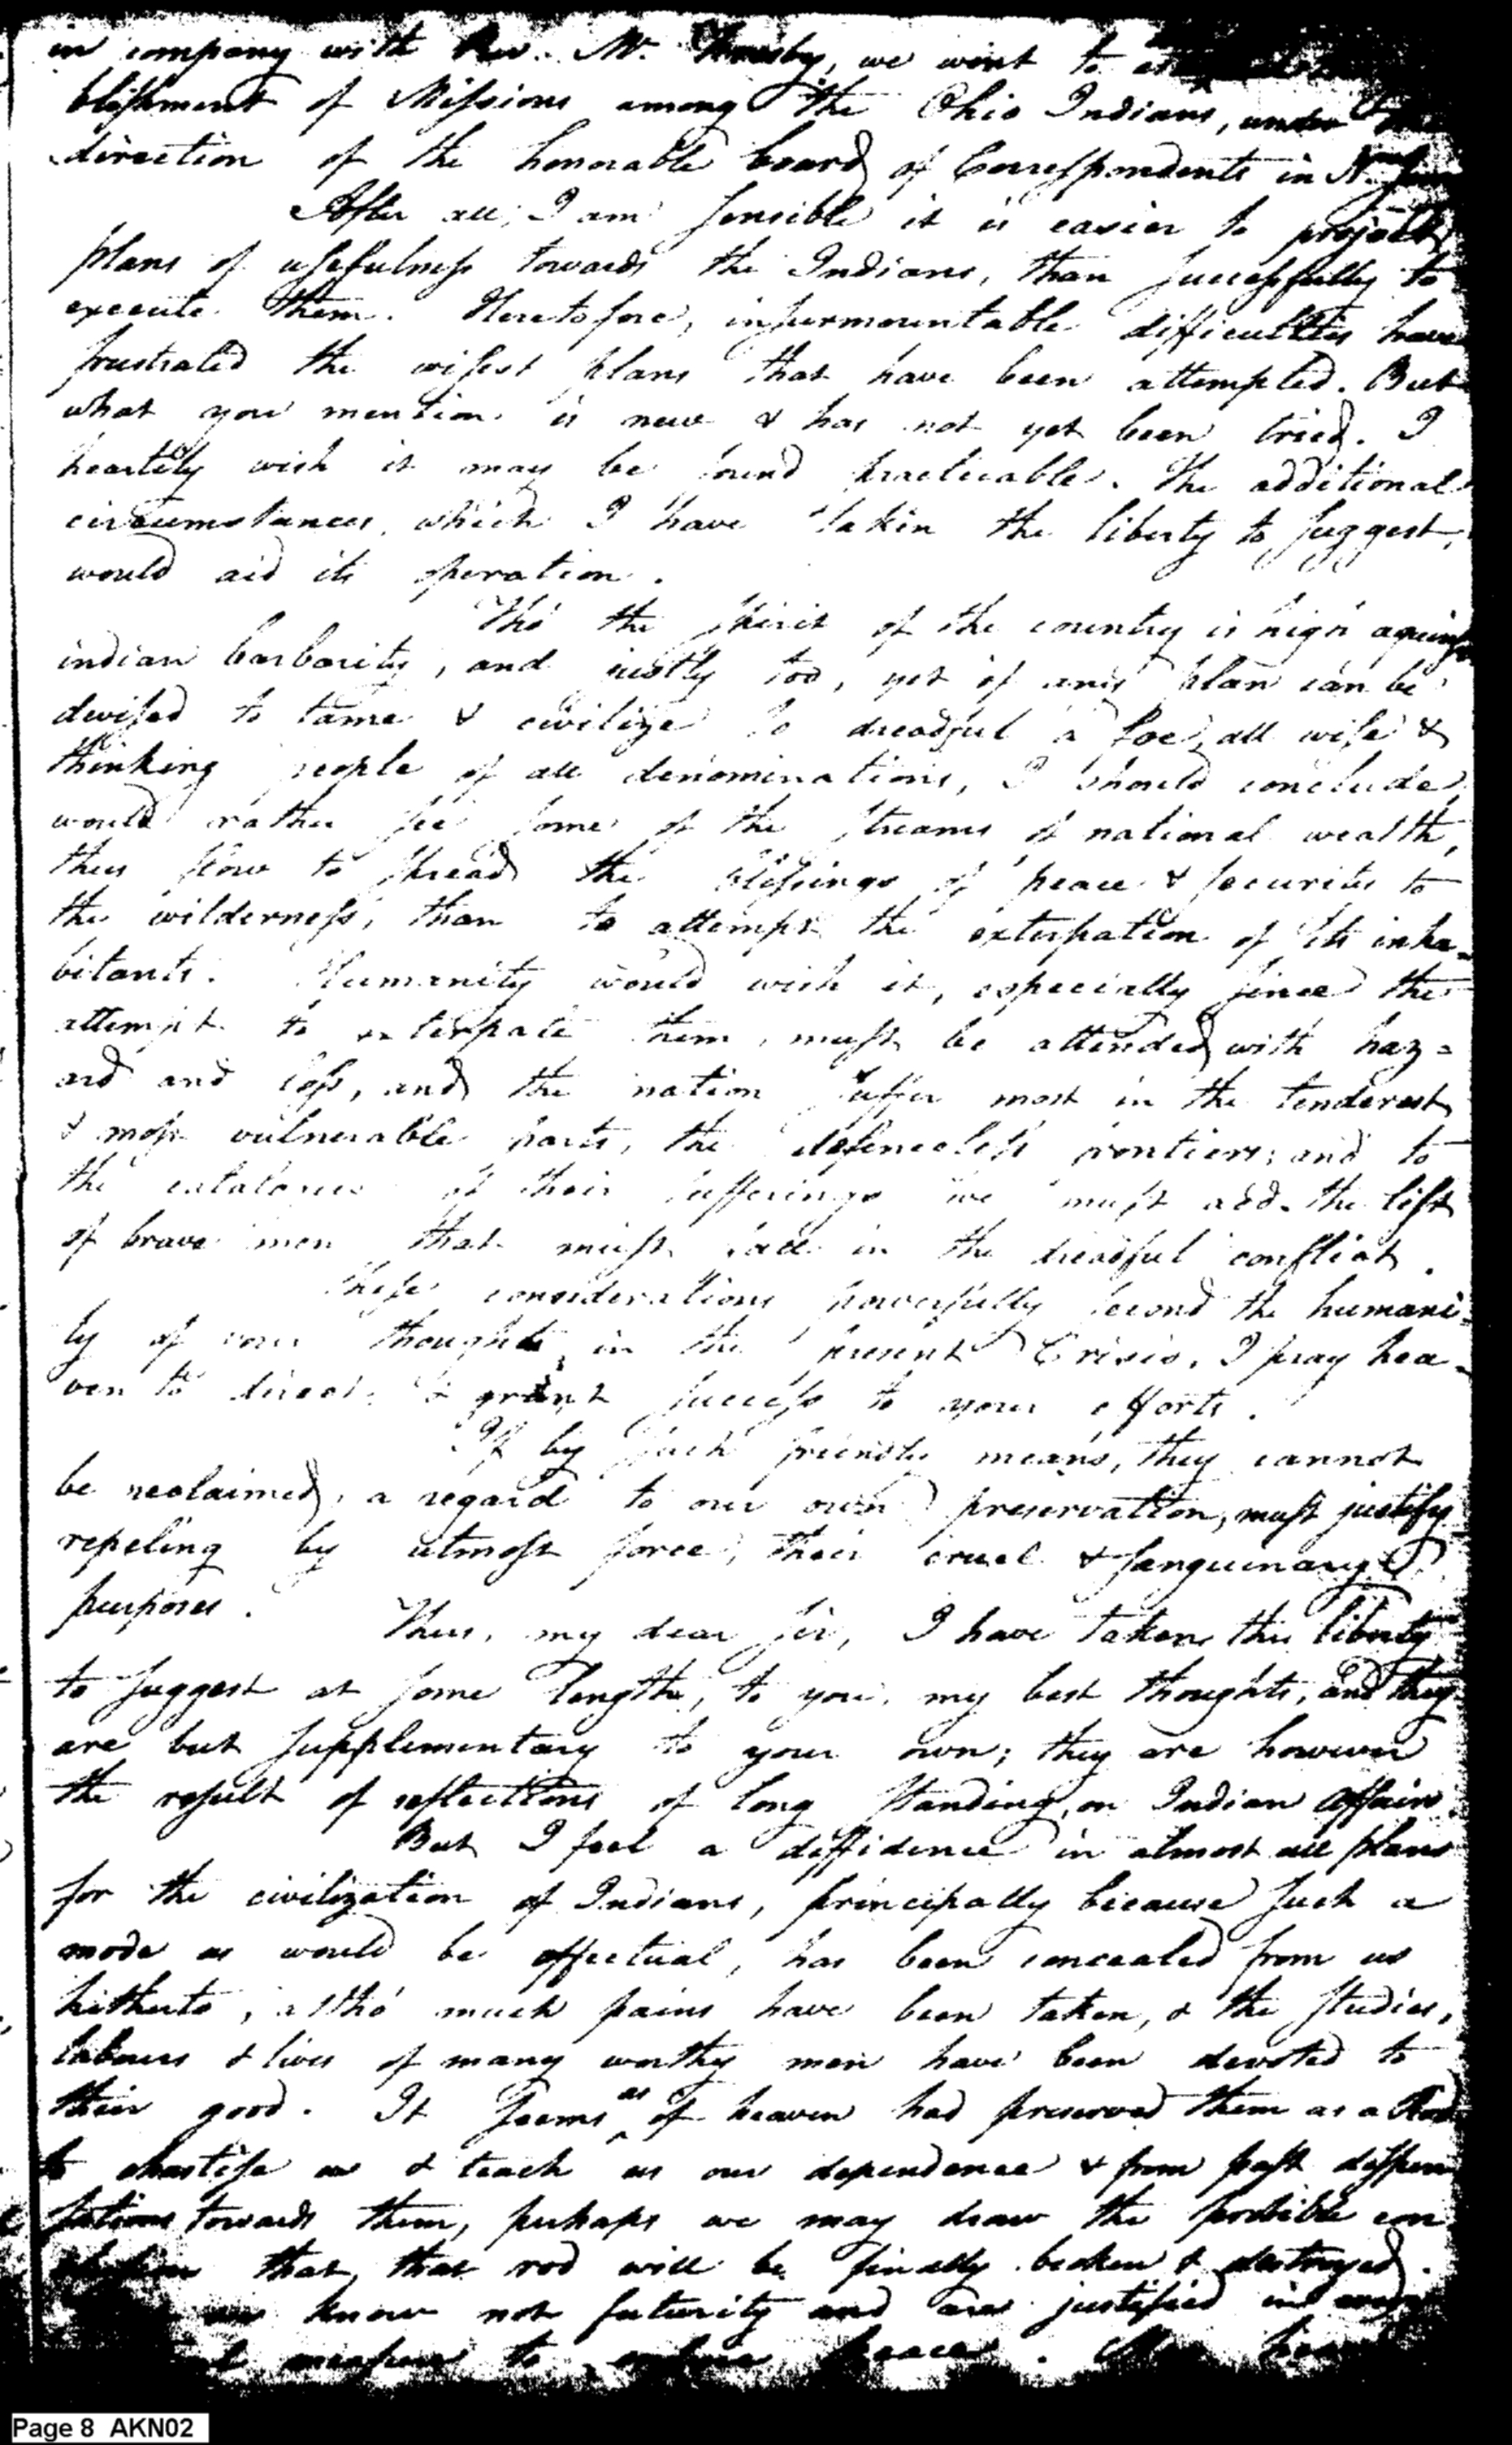 in company with Rev. Mr. we went to
blishment of Missions among the Ohio Indians, under the
direction of the honorable board of Correspondents in N.
After all, I am sensible it is easier to project
plans of usefulness towards the Indians, than successfully to
execute them. Heretofore, insurmountable difficulties have
frustrated the wisest plans that have been attempted. But
what you mention is new & has not yet been tried. I
heartily wish it may be found practicable. The additional
circumstances, which I have taken the liberty to suggest,
would aid its operation.
Tho' the spirit of the country is high against
indian barbarity, and justly too, yet if any plan can be
devised to tame & civilize so dreadful a foe, all wise &
thinking people of all denominations, I should conclude
would rather see some of the streams of national wealth,
thus flow to spread the blessings of peace & security to
the wilderness, than to attempt the exterpation of its inha-
bitants. Humanity would wish it, especially since the
attempt to exterpate them, must be attended with haz=
ard and loss, and the nation suffer most in the tenderest
& most vulnerable parts, the defenceless frontiers; and to
the catalogue of their sufferings we must add the list
of brave men that must fall in the dreadful conflict.
These considerations powerfully second the humani-
ty of your thoughts, in the present Crisis. I pray hea-
ven to direct & grant success to your efforts.
If by such friendly means, they cannot
be reclaimed, a regard to our own preservation, must justify
repeling by utmost force, their cruel & sanguinary
purposes.
Thus, my dear sir, I have taken the liberty
to suggest at some length, to you, my best thoughts, and they
are but supplementary to your own; they are however
the result of reflections of long standing, on Indian affairs.
But I feel a diffidence in almost all plans
for the civilization of Indians, principally because such a
mode as would be effectual, has been concealed from us
hitherto, altho' much pains have been taken, & the studies,
labours & lives of many worthy men have been devoted to
their good. It seems as if heaven had preserved them as a Rod
to chastise us & teach us our dependence & from past dispen
sations towards them, perhaps we may draw the probable con
clusion that, that rod will be finally broken & destroyed.
we know not futurity and are justified in
measures to peace.
Page 8 AKN02